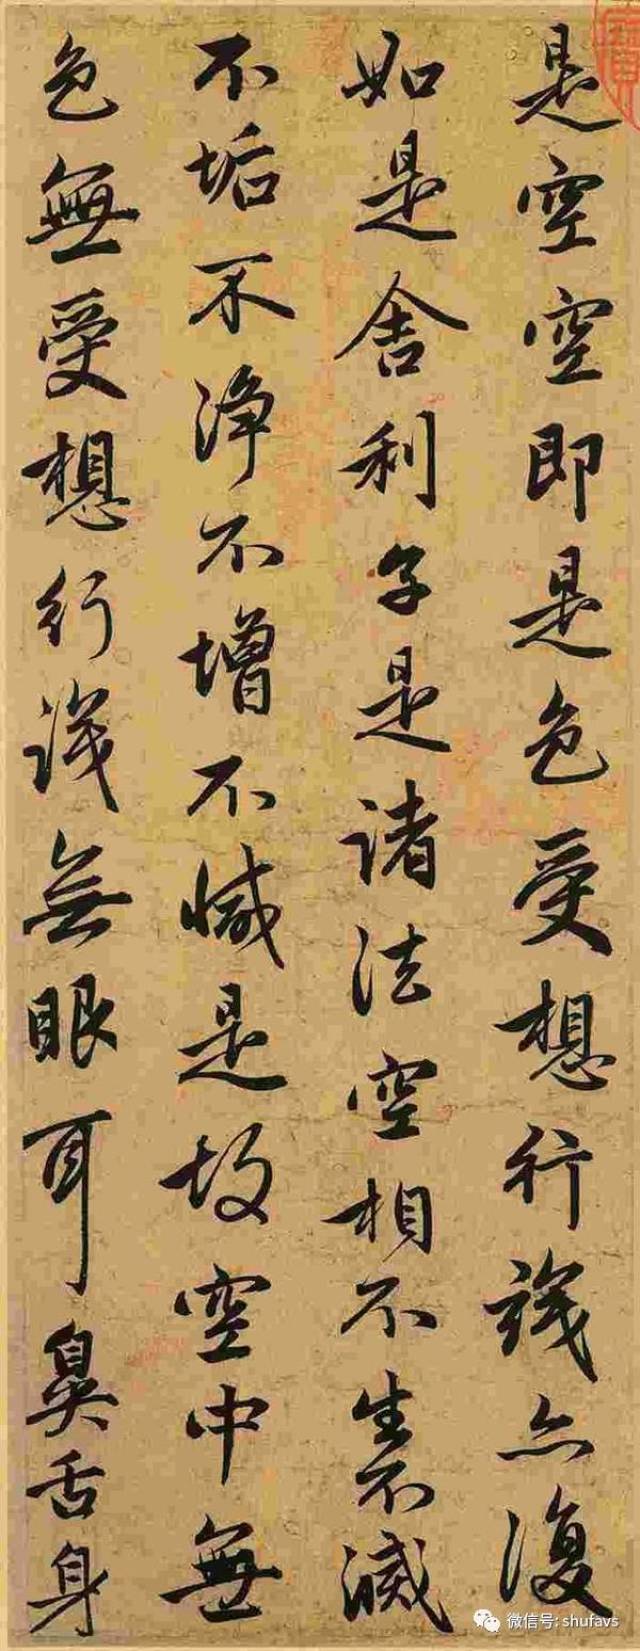 是空空即是色受想行識亦復
如是舍利子是諸法空相不生不滅
不垢不淨不增不減是故空中無
色無受想行識無眼耳鼻舌身
微信号: shufavs